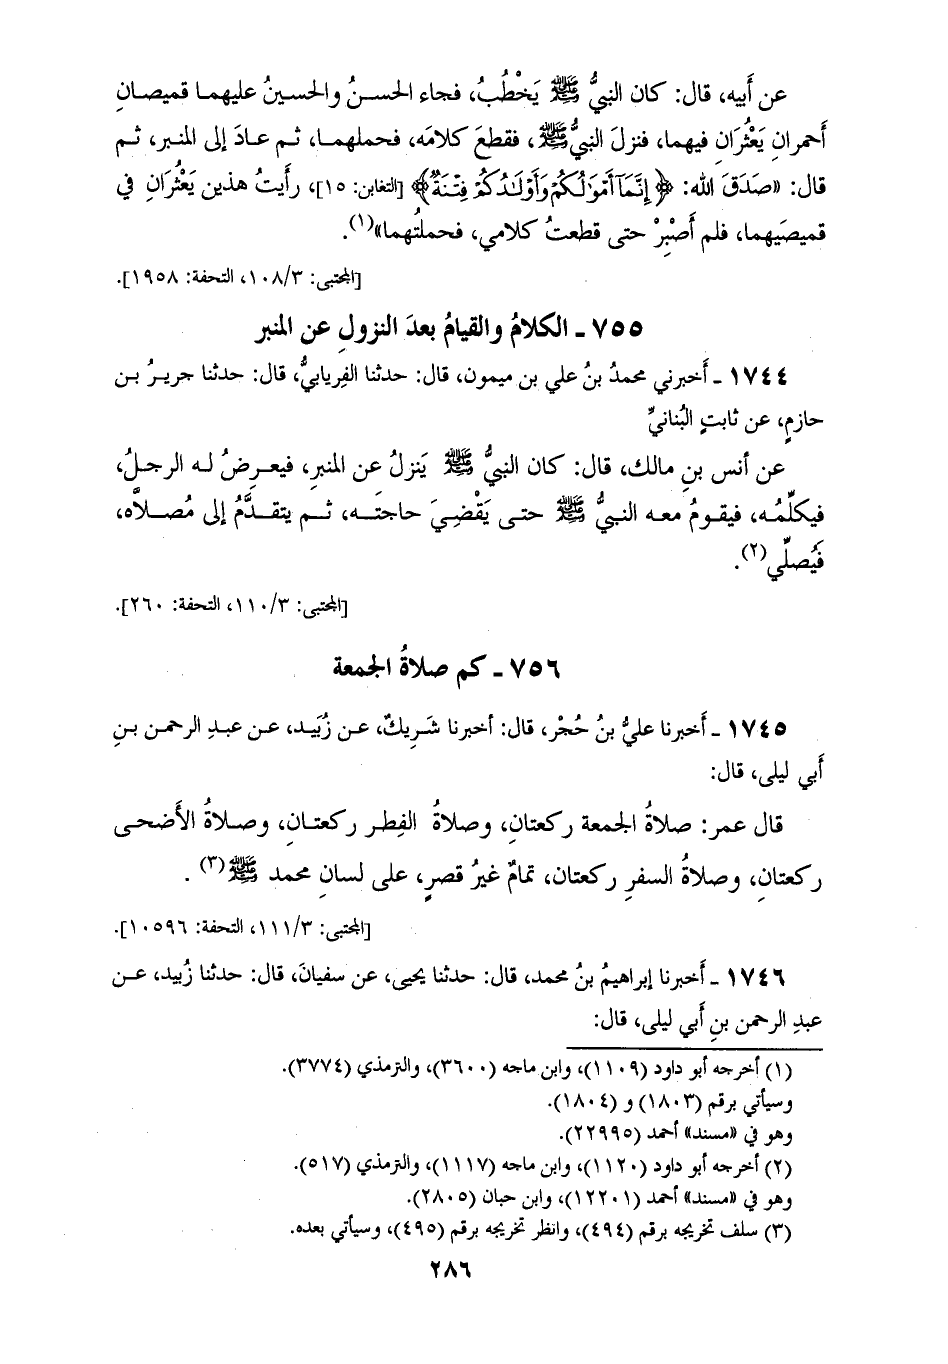 عن أَبيه، قال: كان النبيُّ ﷺ يَخْطُبُ، فجاء الحسنُ والحسينُ عليهما قميصانِ
أَحمرانِ يَعْثُرَانِ فيهما، فنزلَ النبيُّ ﷺ، فقطعَ كلامَه، فحملهما، ثم عادَ إلى المنبر، ثم
قال: «صَدَقَ الله: ﴿إِنَّمَآ أَمۡوَٰلُكُمۡ وَأَوۡلَٰدُكُمۡ فِتۡنَةٞ﴾ [التغابن: ١٥]، رأَيتُ هذين يَعْثُرَانِ في
قميصَيهما، فلم أَصْبِرْ حتى قطعتُ كلامي، فحملتُهما»(١).
[المجتبى: ١٠٨/٣، التحفة: ١٩٥٨].
٧٥٥ ـ الكلامُ والقيامُ بعدَ النزولِ عن المنبر
١٧٤٤ ـ أَخبرني محمدُ بنُ علي بن ميمون، قال: حدثنا الفِريابيُّ، قال: حدثنا جريرُ بن
حازمٍ، عن ثابتٍ البُنانيِّ
عن أنس بنِ مالك، قال: كان النبيُّ ﷺ يَنزلُ عن المنبرِ، فيعرضُ له الرجلُ،
فيكلِّمُه، فيقومُ معه النبيُّ ﷺ حتى يَقْضِيَ حاجتَه، ثم يتقدَّمُ إلى مُصلاَّه،
فَيُصلِّي(٢).
[المجتبى: ١١٠/٣، التحفة: ٢٦٠].
٧٥٦ ـ كم صلاةُ الجمعة
١٧٤٥ ـ أَخبرنا عليُّ بنُ حُجْر، قال: أخبرنا شَرِيكٌ، عن زُبَيد، عن عبدِ الرحمن بنِ
أَبي ليلى، قال:
قال عمر: صلاةُ الجمعة ركعتانِ، وصلاةُ الفِطر ركعتانِ، وصلاةُ الأَضحى
ركعتانِ، وصلاةُ السفرِ ركعتان، تمامٌ غيرُ قصرٍ، على لسانِ محمد ﷺ(٣) .
[المجتبى: ١١١/٣، التحفة: ١٠٥٩٦].
١٧٤٦ ـ أَخبرنا إبراهيمُ بنُ محمد، قال: حدثنا يحيى، عن سفيانَ، قال: حدثنا زُبيد، عن
عبدِ الرحمن بنِ أَبي ليلى، قال:
(١) أخرجه أبو داود (١١٠٩)، وابن ماجه (٣٦٠٠)، والترمذي (٣٧٧٤).
وسيأتي برقم (١٨٠٣) و (١٨٠٤).
وهو في «مسند» أحمد (٢٢٩٩٥).
(٢) أخرجه أبو داود (١١٢٠)، وابن ماجه (١١١٧)، والترمذي (٥١٧).
وهو في «مسند» أحمد (١٢٢٠١)، وابن حبان (٢٨٠٥).
(٣) سلف تخريجه برقم (٤٩٤)، وانظر تخريجه برقم (٤٩٥)، وسيأتي بعده.
٢٨٦